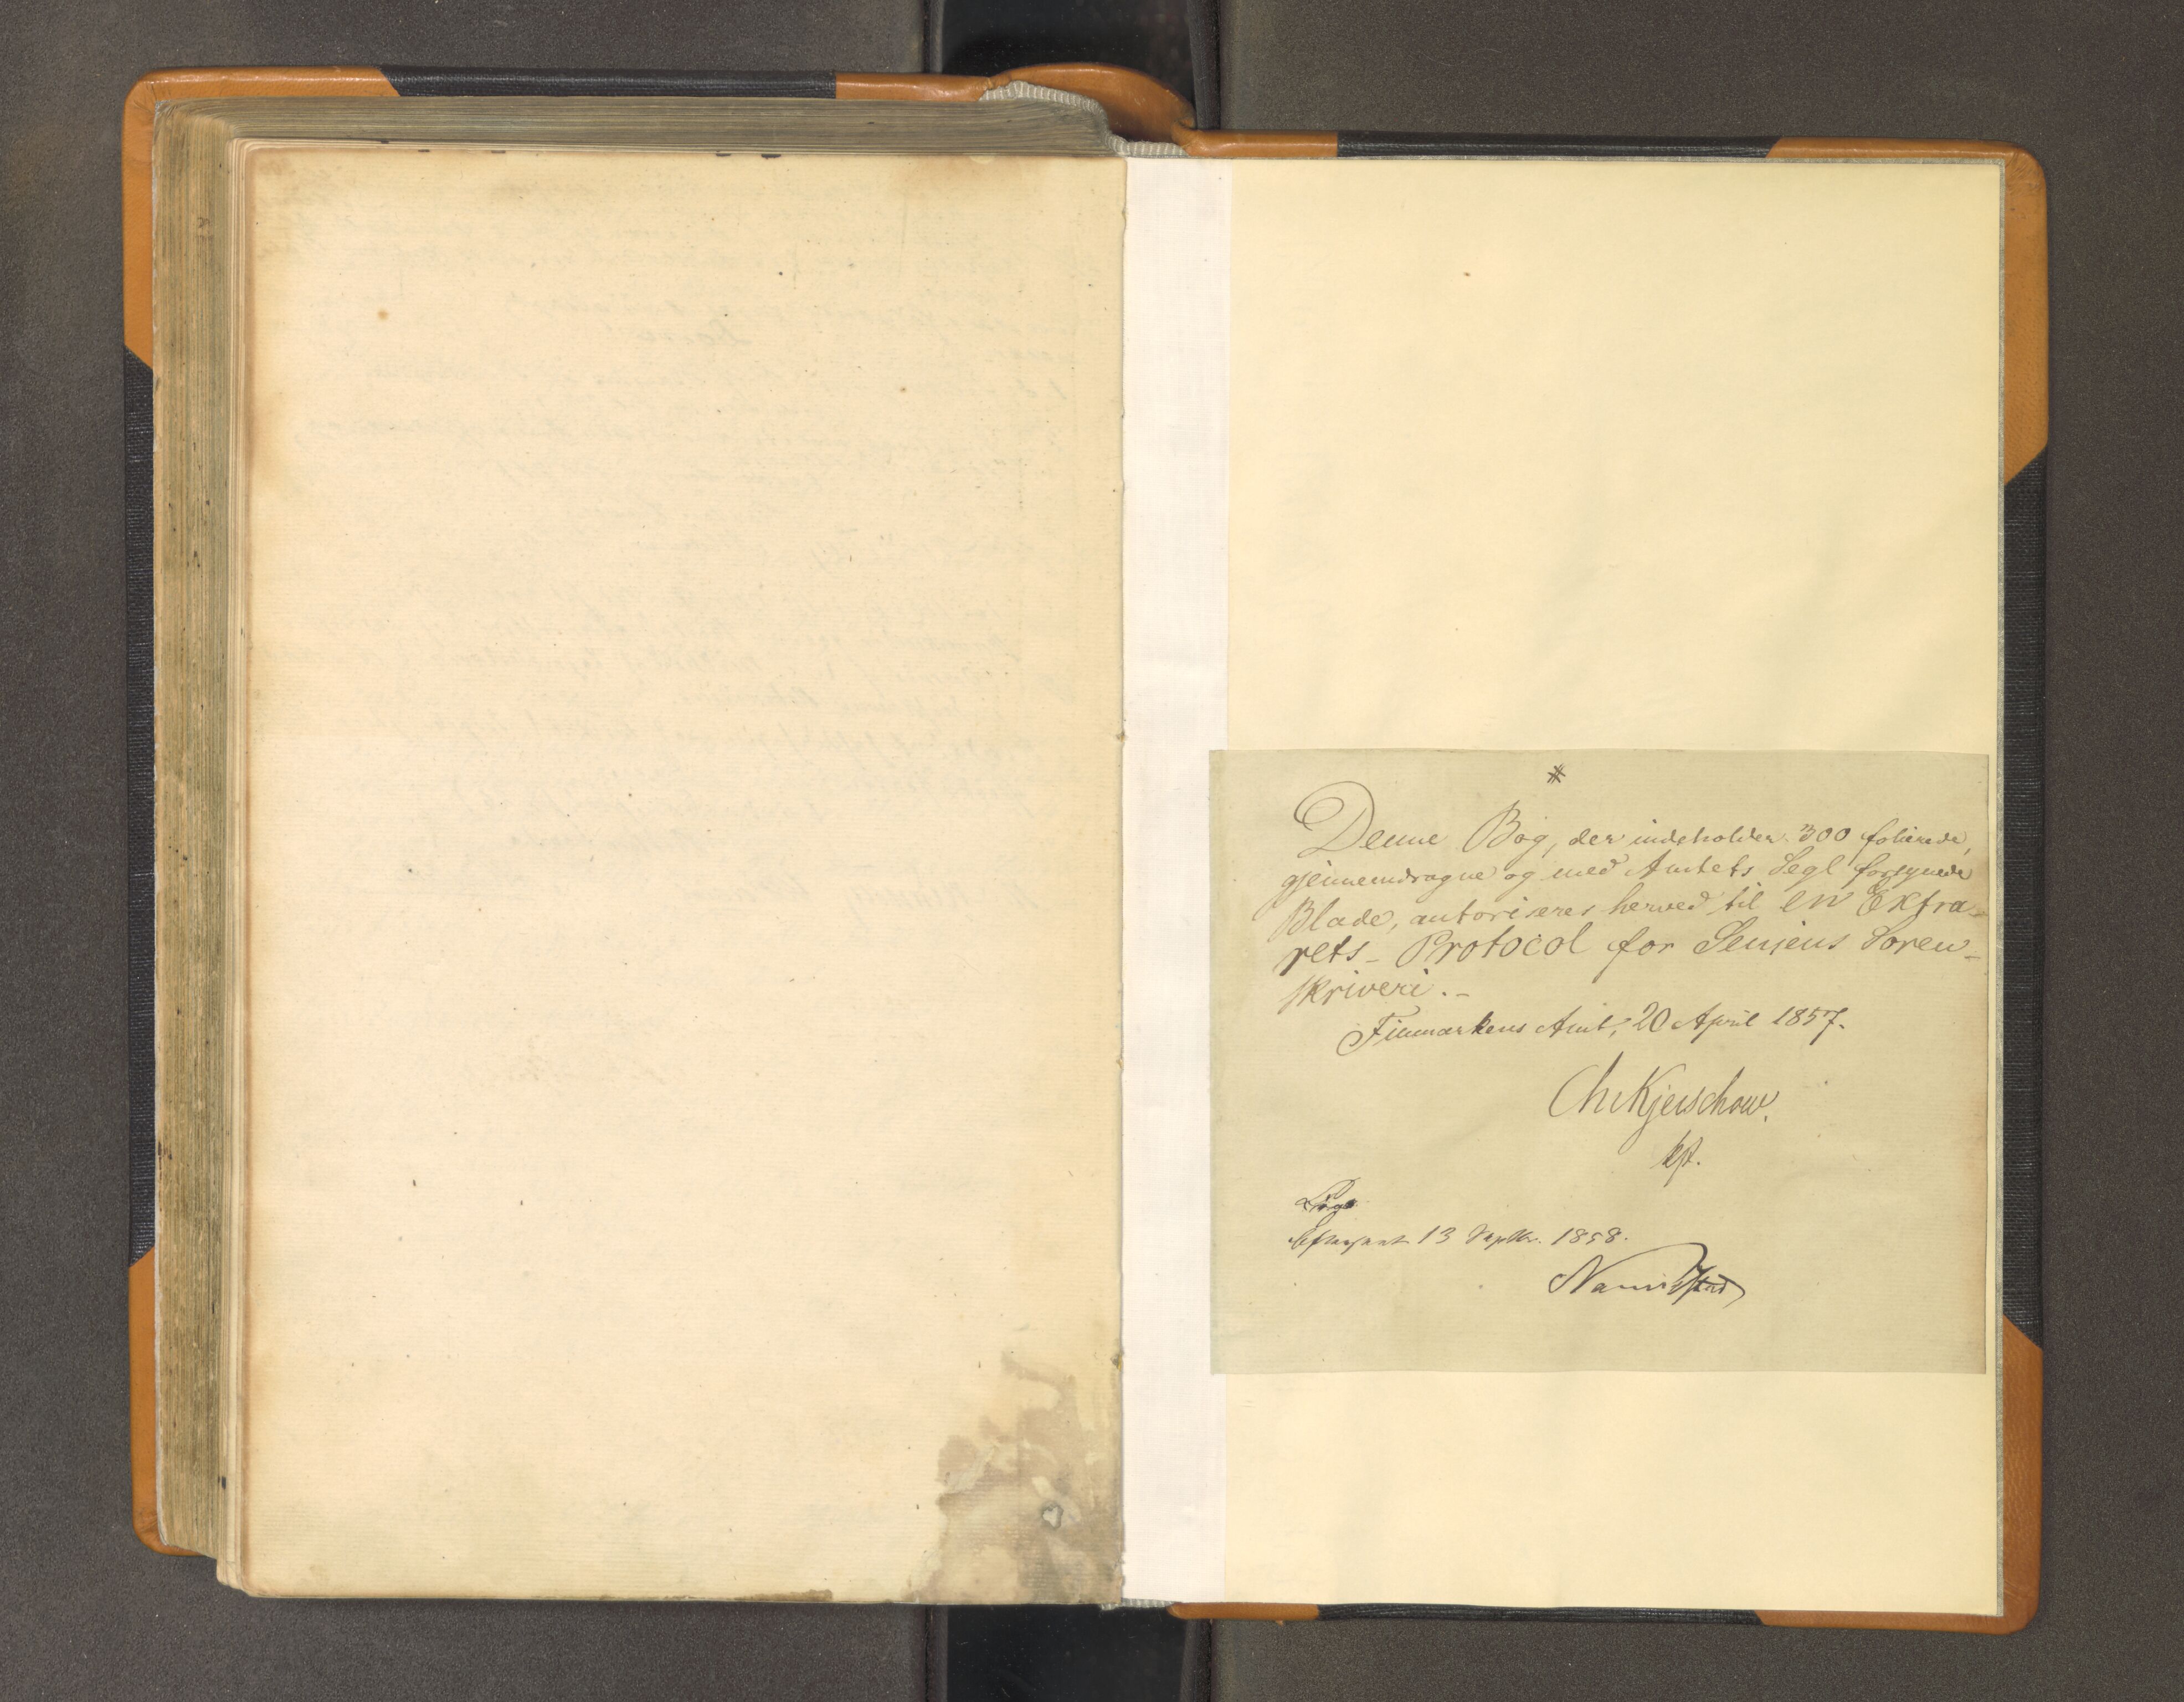 Denne Bog, der indeholder 300 folierede,
gjennemdragne og med Amtets Segl forsynede
Blade, autoriseres herved til en Extra-
rets-Protocol for Senjens Soren-
skriveri.-
Finmarkens Amt, 20 April 1857.
Chr Kjerschow.
kst.
Efterseet 13 Septbr. 1858.